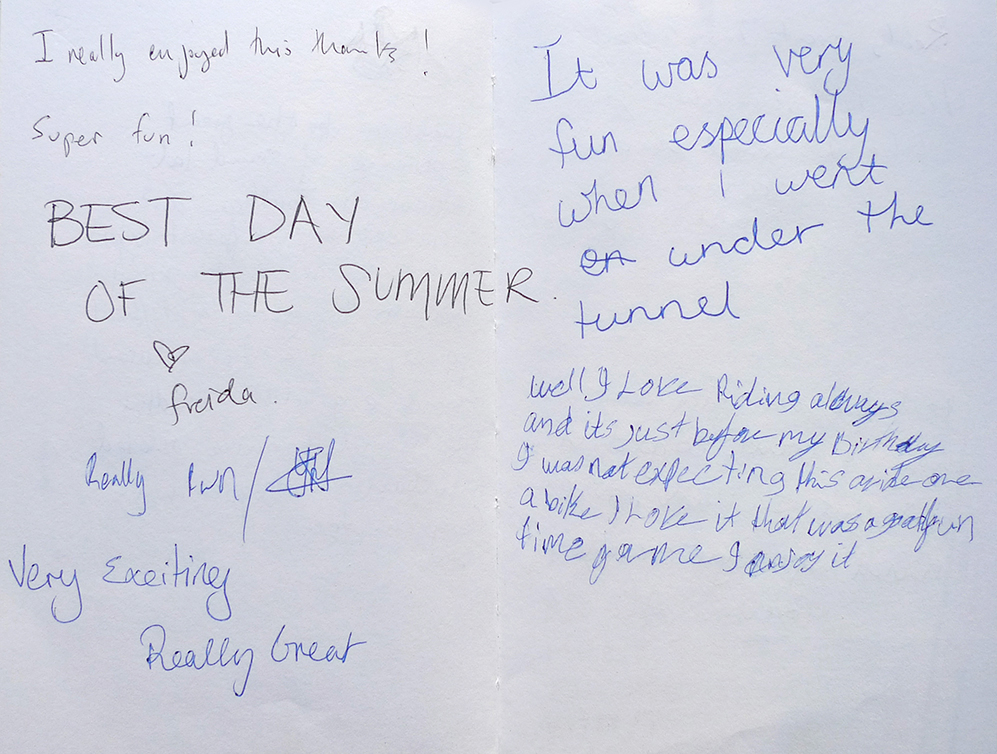 I really enjoyed this thanks!
Super fun!
BEST DAY
OF THE SUMMER.
freida.
Really fun /
Very Exciting
Really Great
It was very
fun especially
when i went
under the
tunnel
well I LOVE Riding always
and its just before my Birthday
I was not expecting this a ride one
a bike I LOVE it that was a great fun
time game I enjoy it